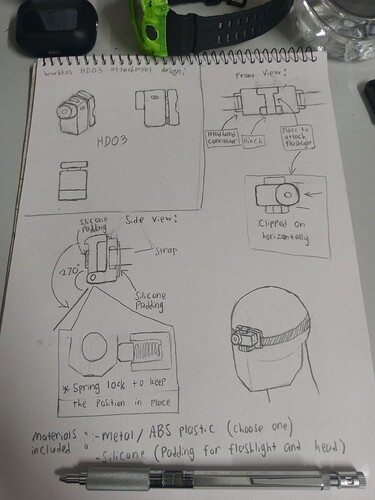 Wurkkos HD03 attachment design:
HD03
Front view:
Headband
connector
Hinch
Place to
attach
flashlight
Clipped on
horizontally
Side view:
Silicone
Padding
Strap
270°
Silicone
Padding
* Spring lock to keep
the position in place
Materials included : - metal / ABS plastic (choose one)
- Silicone (Padding for flashlight and head)